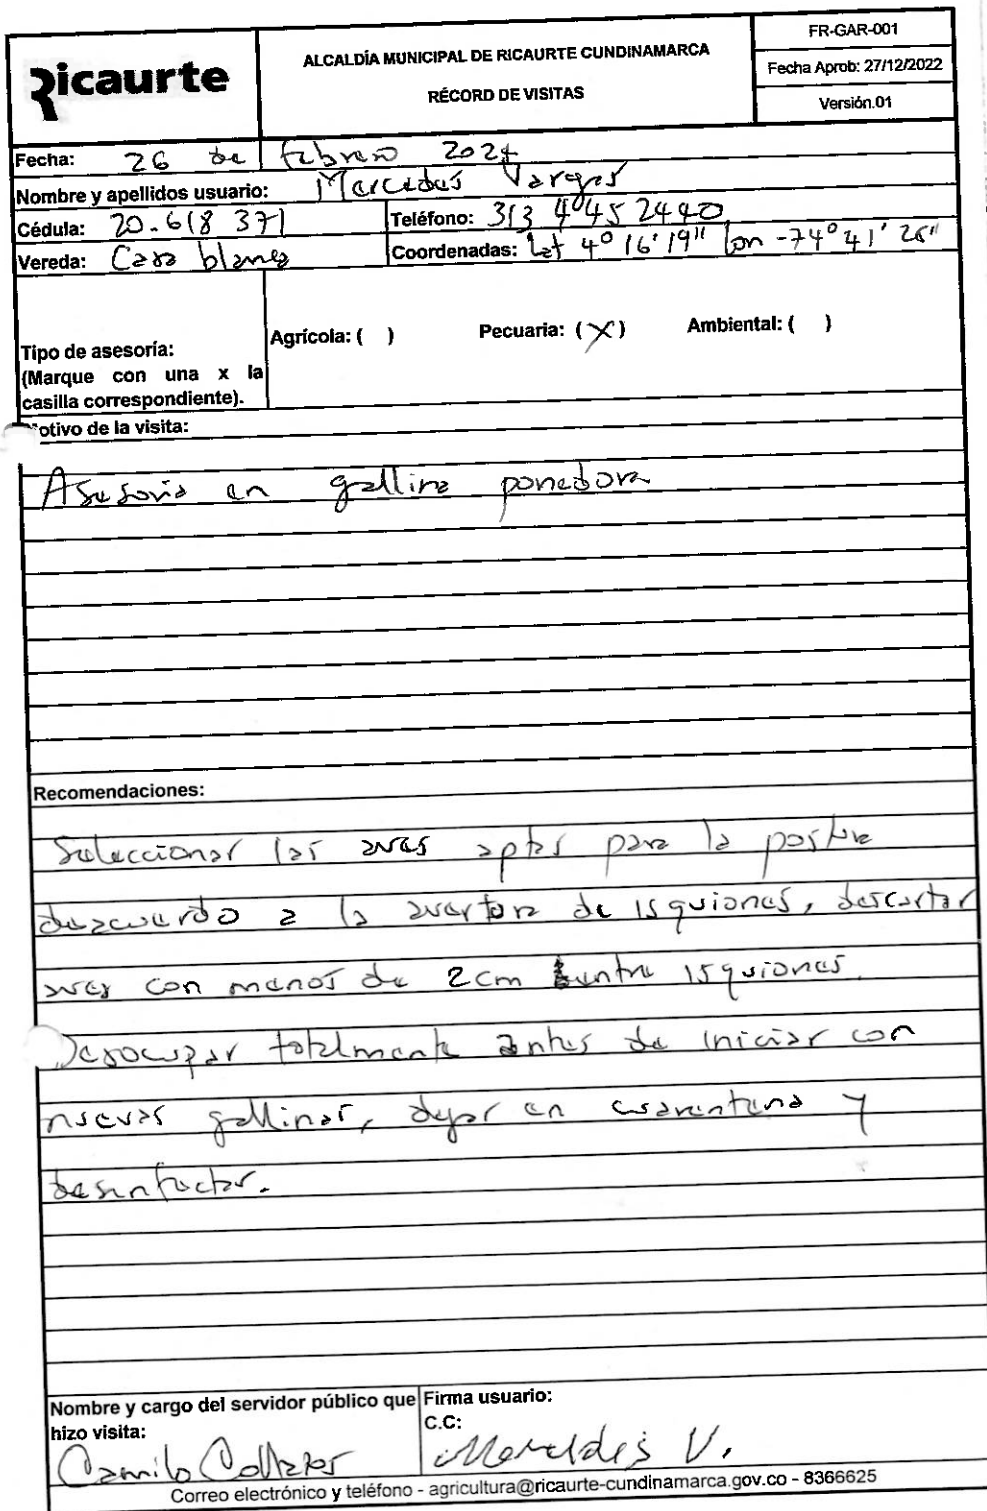 Ricaurte
ALCALDÍA MUNICIPAL DE RICAURTE CUNDINAMARCA
RÉCORD DE VISITAS
FR-GAR-001
Fecha Aprob: 27/12/2022
Versión.01
Fecha: 26 de febrero 2024
Nombre y apellidos usuario: Mercedes Vargas
Cédula: 20.618 371 Teléfono: 313 4452440
Vereda: Casa blanca Coordenadas: Lat 4° 16' 19" lon -74° 41' 26"
Tipo de asesoría:
(Marque con una x la
casilla correspondiente).
Agrícola: ( ) Pecuaria: (X) Ambiental: ( )
otivo de la visita:
Asesoria en gallina ponedora
Recomendaciones:
Seleccionar las aves aptas para la postura
deacuerdo a la avertura de isquiones, descartar
aves con menos de 2cm entre isquiones.
Desocupar totalmente antes de iniciar con
nuevas gallinas, dejar en cuarentena y
desinfectar.
Nombre y cargo del servidor público que
hizo visita:
Camilo Collazos
Firma usuario:
C.C:
Mercedes V.
Correo electrónico y teléfono - agricultura@ricaurte-cundinamarca.gov.co - 8366625